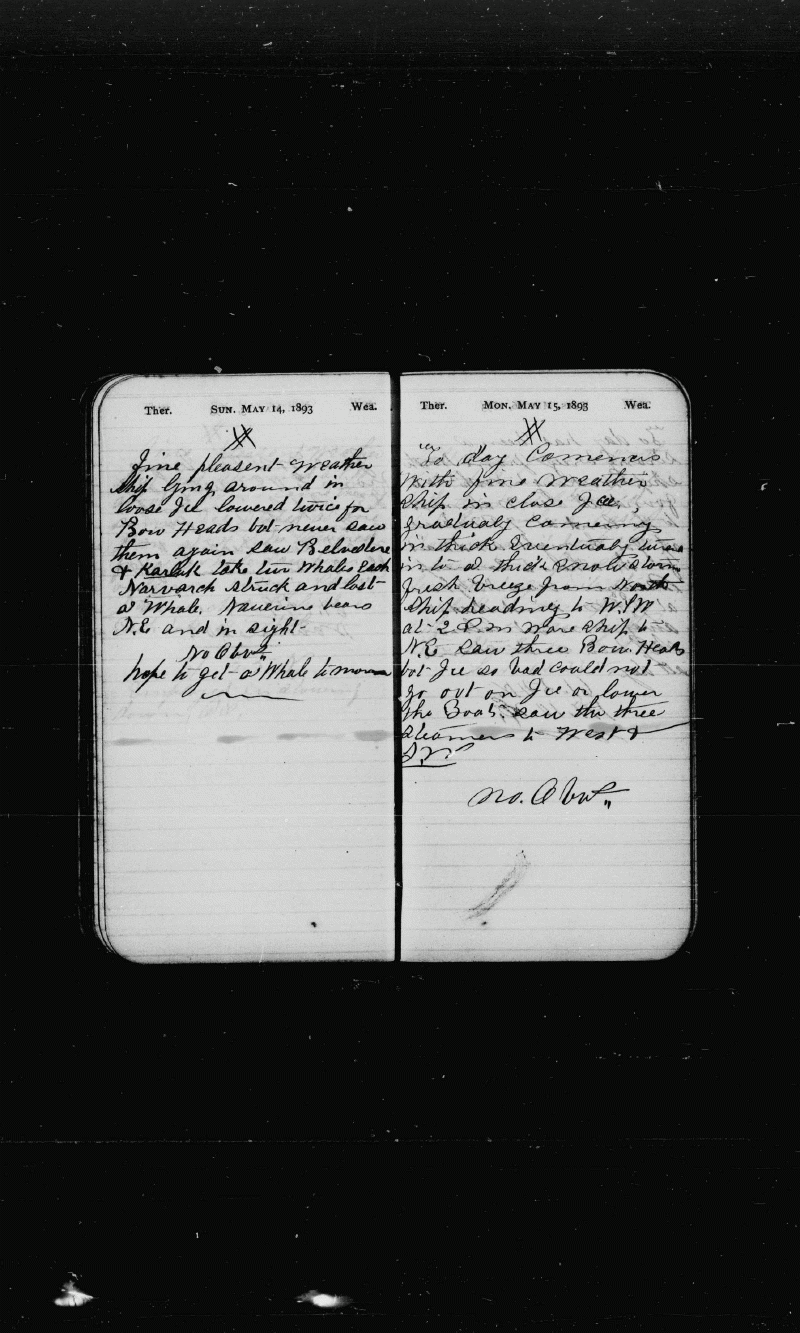 Ther. SUN. MAY 14, 1893 Wea.
fine pleasent Weather
ship lying around in
loose Ice lowered twice for
Bow Heads but never saw
them again saw Belvedere
& Karluk take two Whales each
Narvarch struck and lost
a Whale. Navenine bears
N.E and in sight
No Obvt
hope to get a Whale to morrow
Ther. MON. MAY 15, 1893 Wea.
To day Comences
With fine Weather
Ship in close Ice,
gradualy Comeing
in thick Eventualy turns
in to a thick snow storm
fresh breeze from North
Ship heading to W.S.W
at 2 P.m Ware Ship to
N.E saw three Bow Heads
but Ice so bad could not
go out on Ice or lower
the Boats. saw the three
steamers to West &
S.W.
no. Obvt